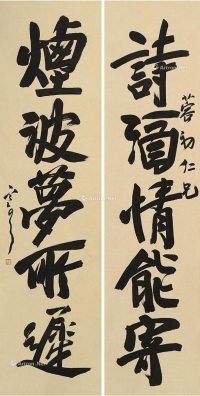 詩酒情能寄
蓉初仁兄
煙波夢所